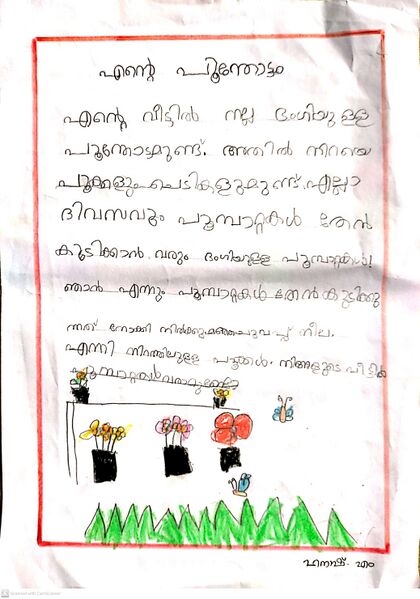 എന്റെ പൂന്തോട്ടം
എന്റെ വീട്ടിൽ നല്ല ഭംഗിയുള്ള
പൂന്തോട്ടമുണ്ട്. അതിൽ നിറയെ
പൂക്കളും ചെടികളുമുണ്ട്. എല്ലാ
ദിവസവും പൂമ്പാറ്റകൾ തേൻ
കുടിക്കാൻ വരും ഭംഗിയുള്ള പൂമ്പാറ്റകൾ!
ഞാൻ എന്നും പൂമ്പാറ്റകൾ തേൻ കുടിക്കു
ന്നത് നോക്കി നിൽക്കും. മഞ്ഞ ചുവപ്പ് നീല.
എന്നി നിറത്തിലുള്ള പൂക്കൾ. നിങ്ങളുടെ വീട്ടിൽ
പൂമ്പാറ്റകൾ വരാറുണ്ടോ
ഹനാഷ്. എം
Scanned with CamScanner